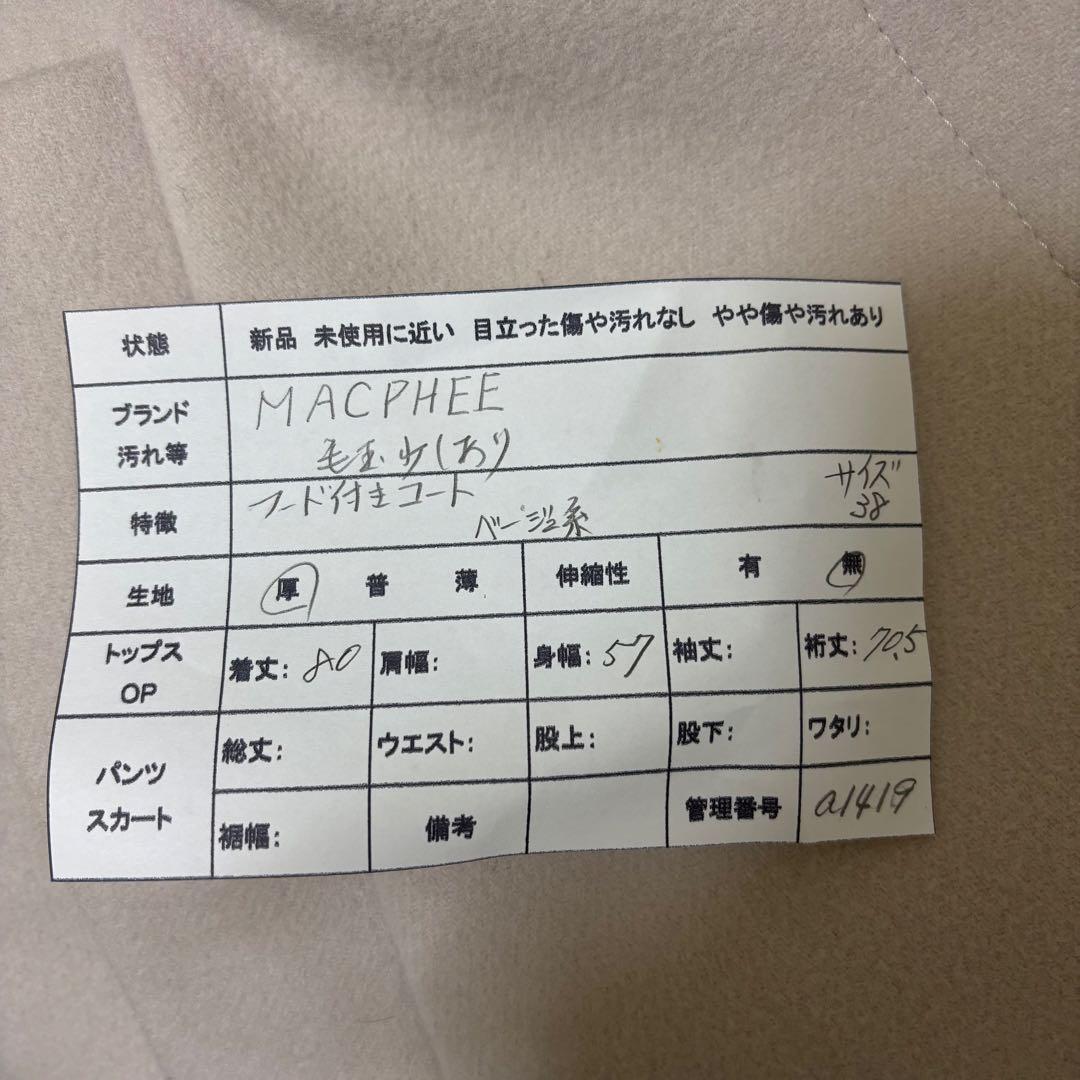 状態 新品 未使用に近い 目立った傷や汚れなし やや傷や汚れあり
ブランド MACPHEE
汚れ等 毛玉少しあり
特徴 フード付きコート サイズ
ベージュ系 38
生地 厚 普 薄 伸縮性 有 無
トップス
OP 着丈: 80 肩幅: 身幅: 57 袖丈: 裄丈: 70.5
パンツ
スカート 総丈: ウエスト: 股上: 股下: ワタリ:
裾幅: 備考 管理番号 a1419